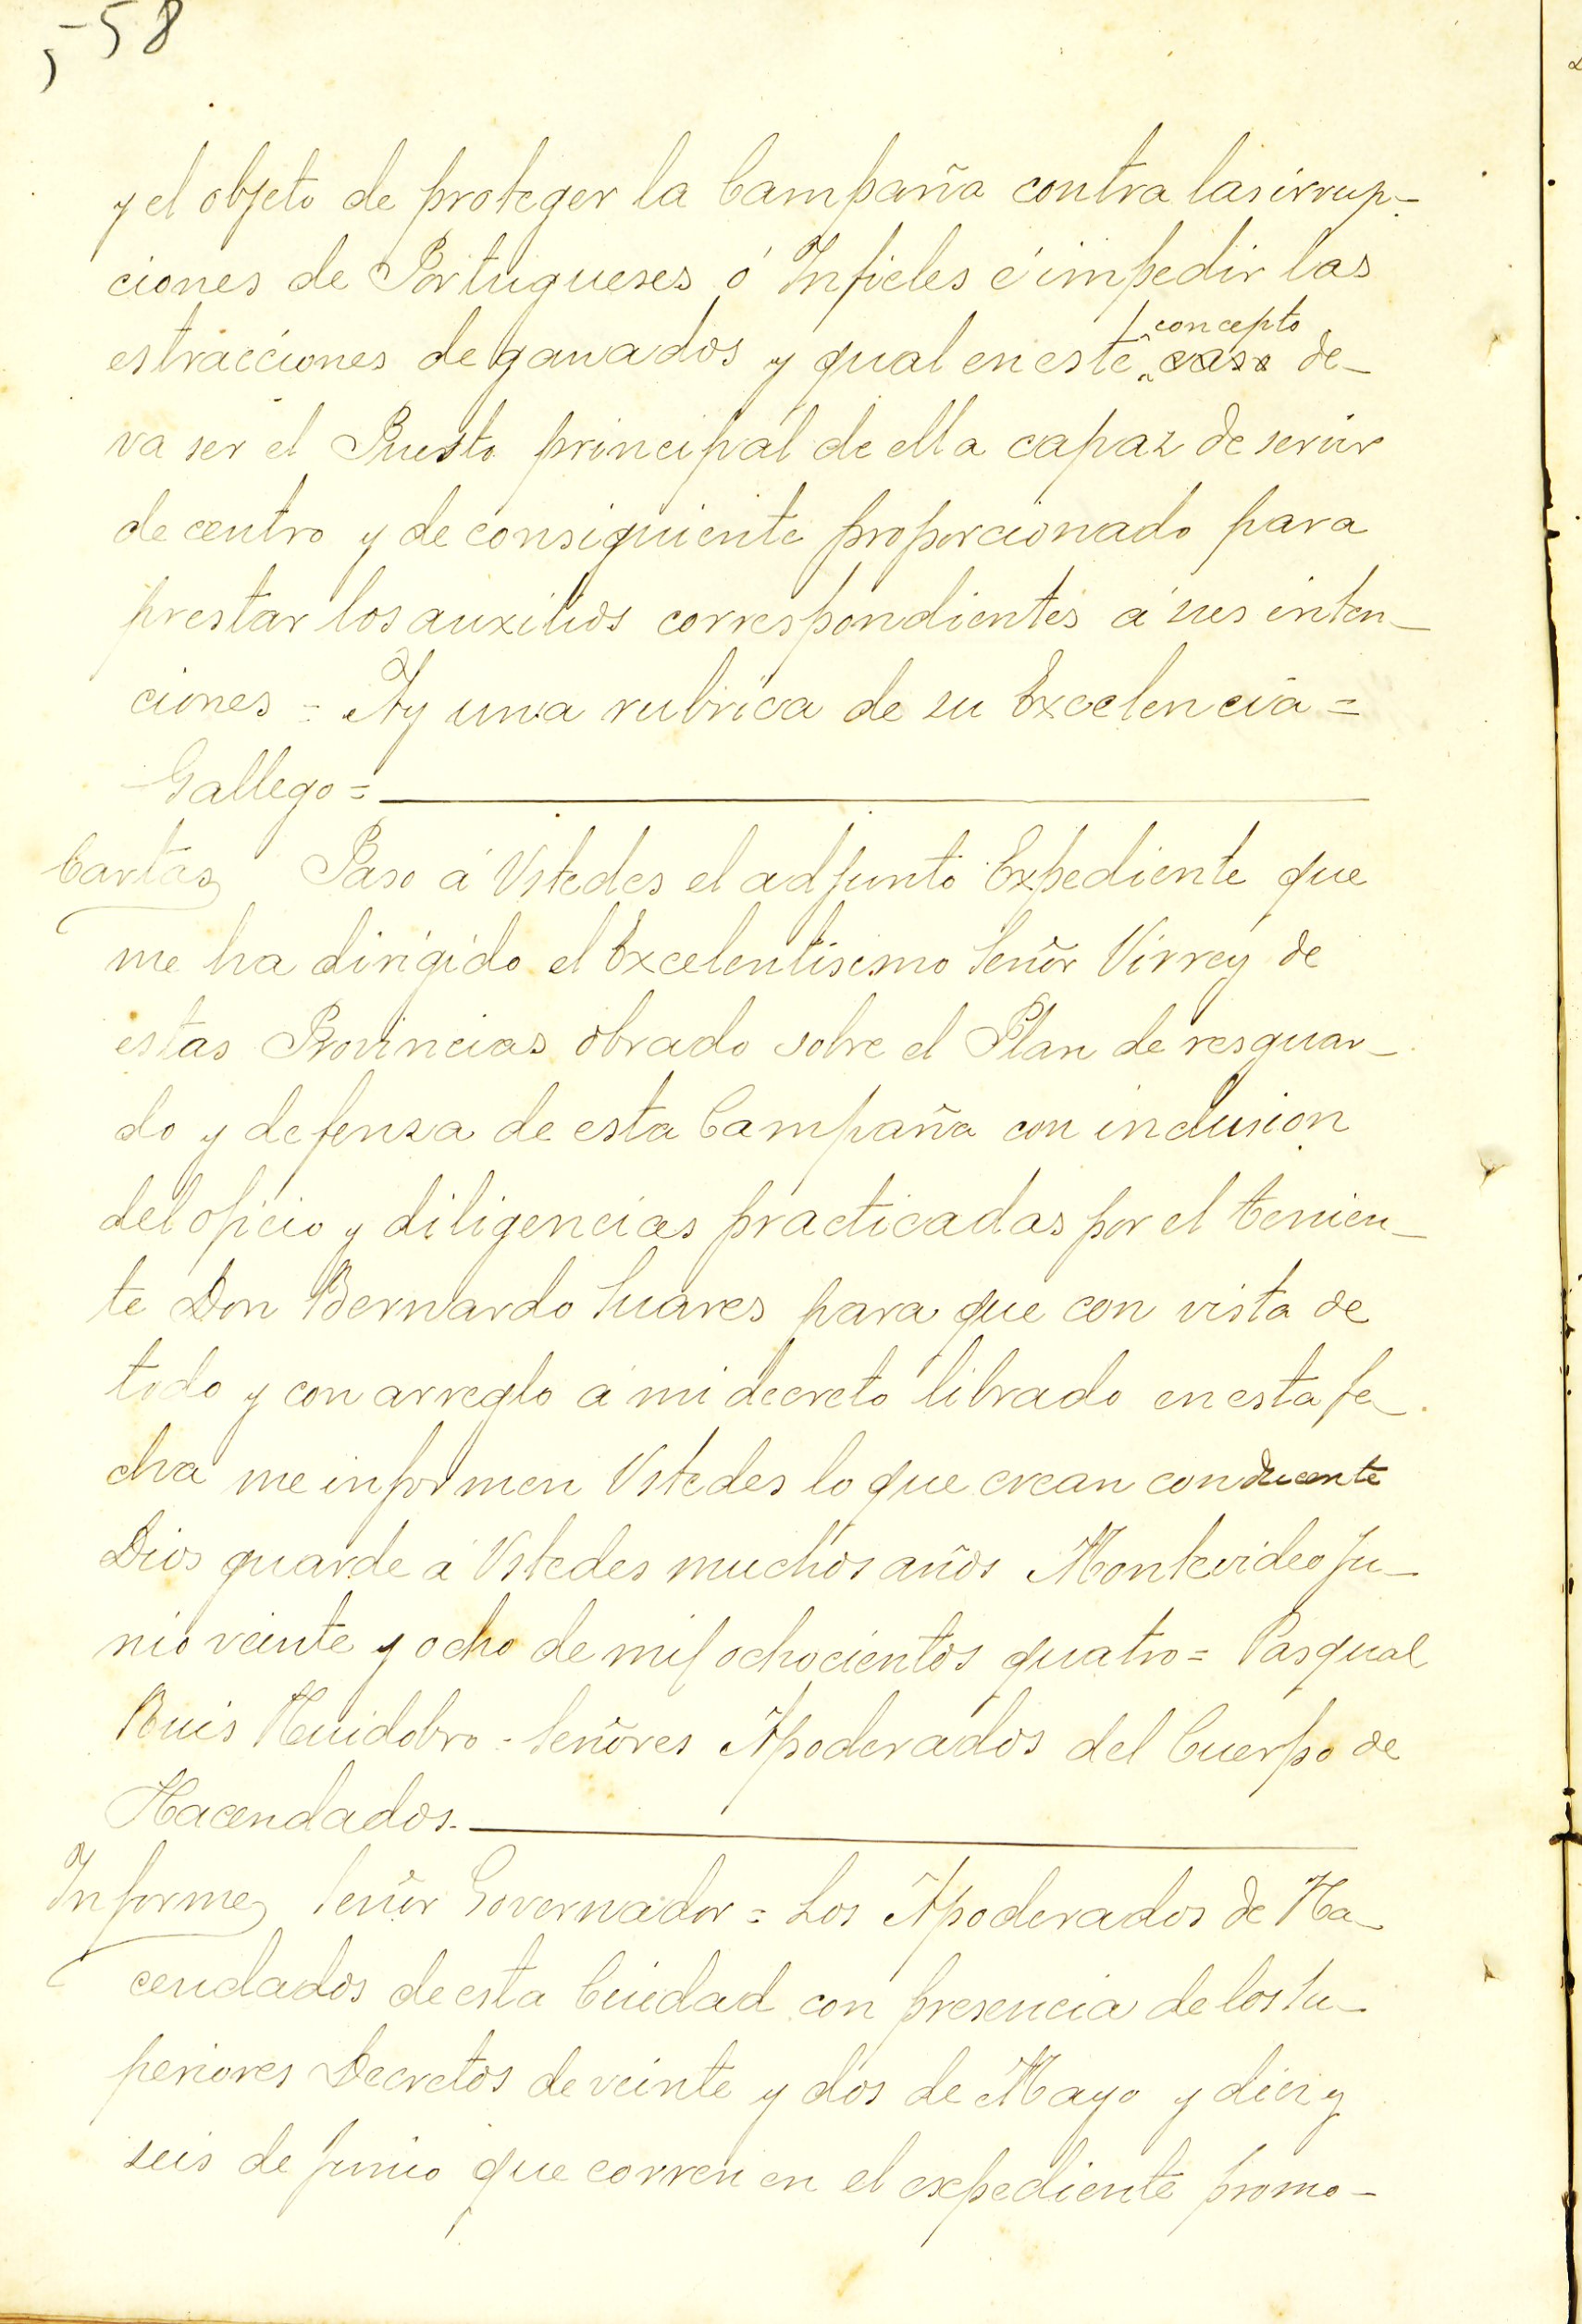 58
y el objeto de proteger la Campaña contra las irrup-
ciones de Portugueses ó Infieles é impedir las
estracciones de ganados y qual en este concepto caso de-
va ser el Puesto principal de ella capaz de servir
de centro y de consiguiente proporcionado para
prestar los auxilios correspondientes á sus inten-
ciones = Ay una rubrica de su Excelencia =
Gallego =
Cartas Paso á Vstedes el adjunto Expediente que
me ha dirigido el Excelentisimo Señor Virrey de
estas Provincias obrado sobre el Plan de resguar-
do y defensa de esta Campaña con inclusion
del oficio y diligencias practicadas por el tenien-
te Don Bernardo Suares para que con vista de
todo y con arreglo á mi decreto librado en esta fe-
cha me informen Vstedes lo que crean conducente
Dios guarde á Vstedes muchos años Montevideo Ju-
nio veinte y ocho de mil ochocientos quatro = Pasqual
Ruis Huidobro - Señores Apoderados del Cuerpo de
Hacendados.
Informe Señor Governador = Los Apoderados de Ha-
cendados de esta Ciudad con presencia de los Su-
periores Decretos de veinte y dos de Mayo y diez y
seis de Junio que corren en el expediente promo-